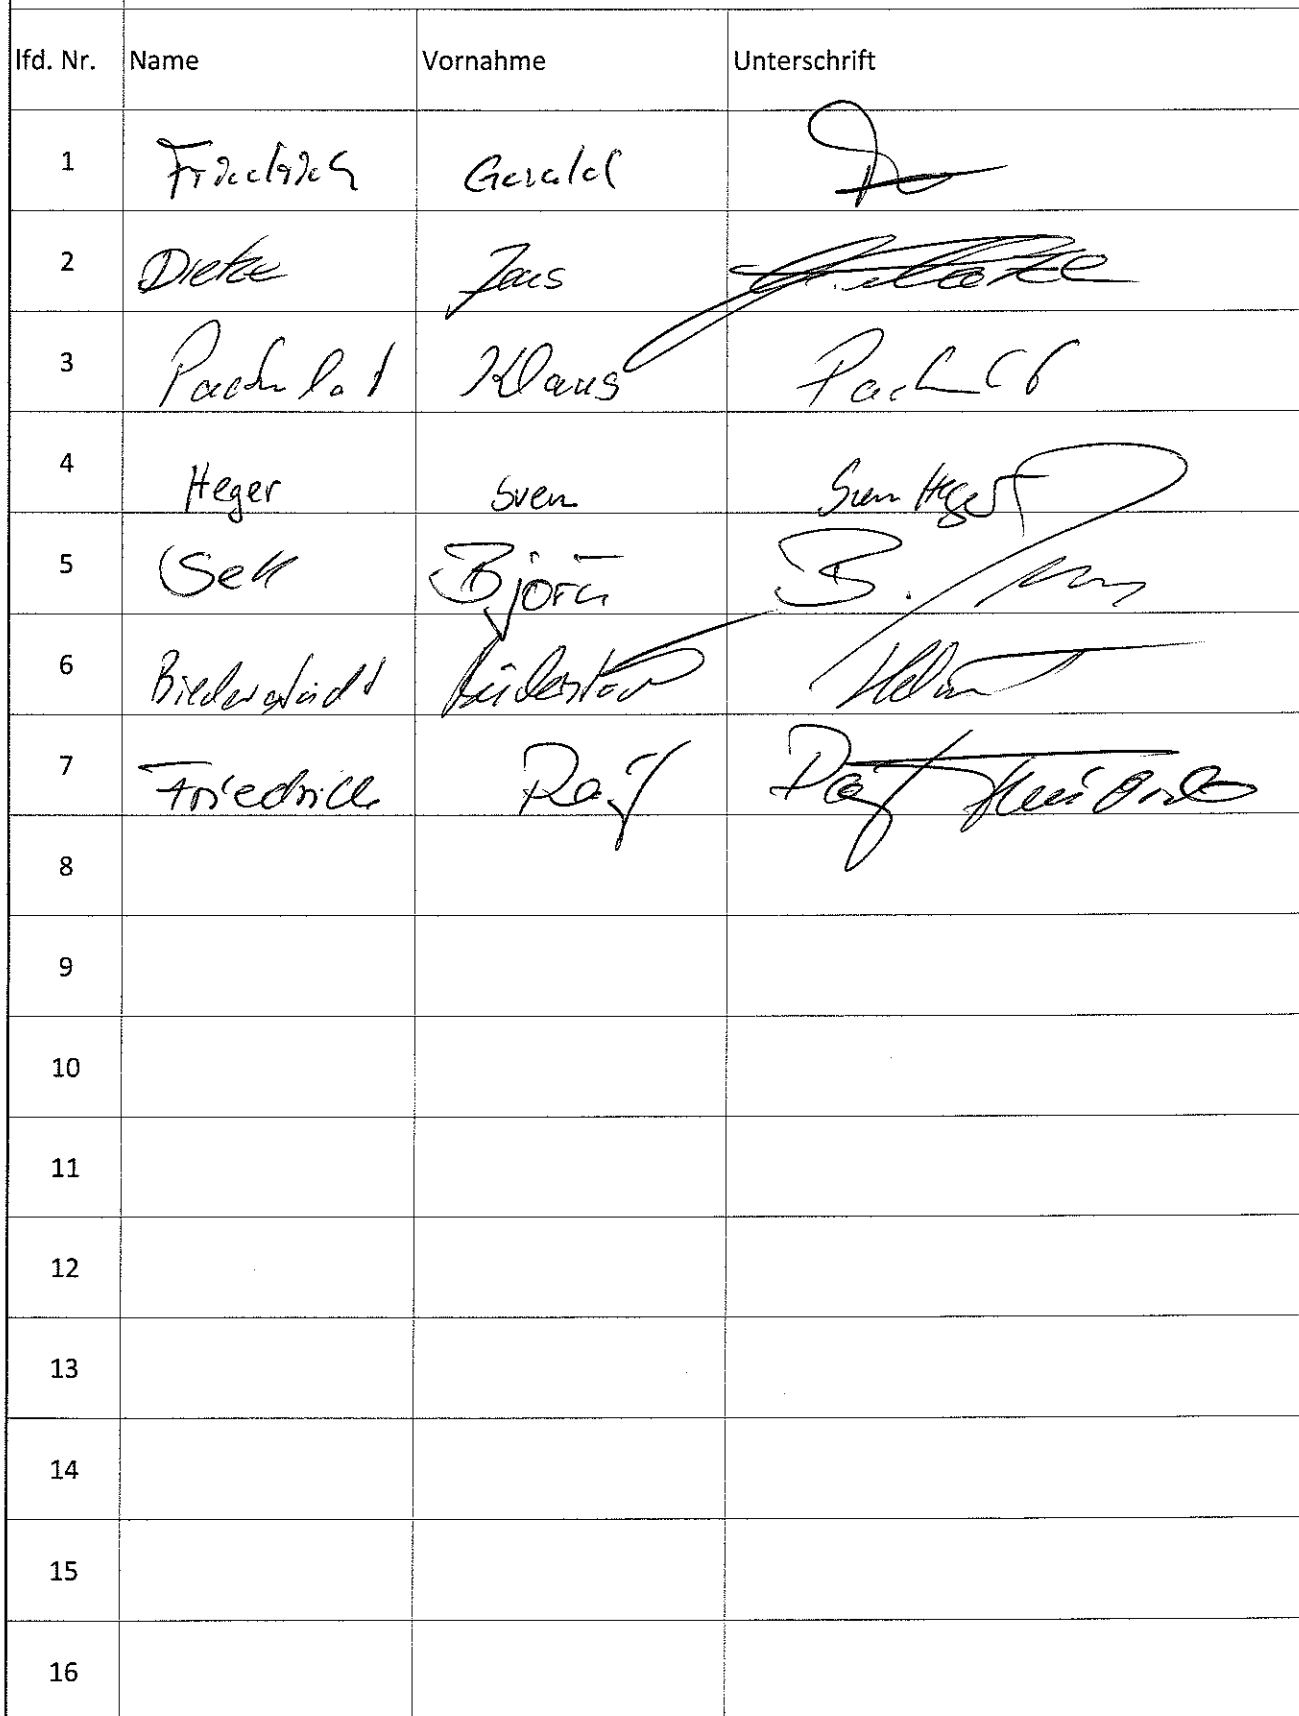 lfd. Nr. Name Vornahme Unterschrift
1 Friedrich Gerald
2 Dietze Jens
3 Klaus
4 Heger Sven Sven Heger
5 Björn B.
6 Biederstädt Helmut
7 Friedrich Ralf Ralf Friedrich
8
9
10
11
12
13
14
15
16